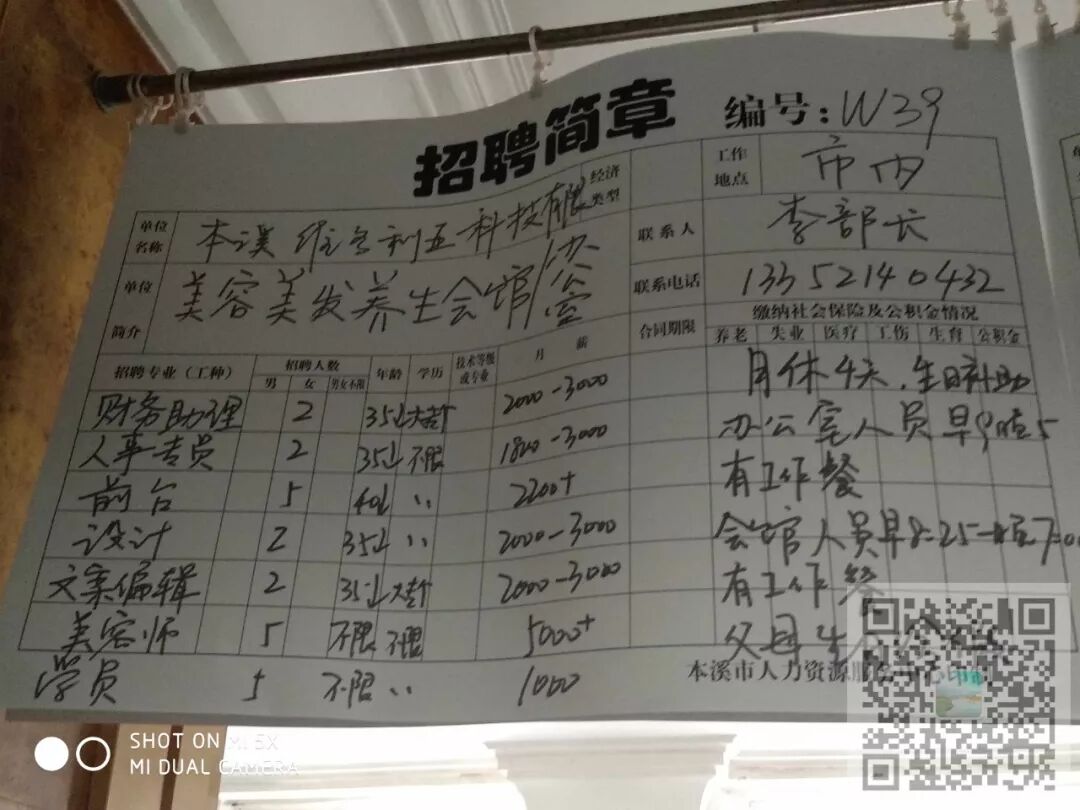 招聘简章 编号:W39
单位名称 本溪维多利亚科技有限 经济类型 工作地点 市内
单位简介 美容美发养生会馆/办公室 联系人 李部长
联系电话 13352140432
合同期限 缴纳社会保险及公积金情况
养老 失业 医疗 工伤 生育 公积金
招聘专业(工种) 招聘人数 年龄 学历 技术等级或专业 月薪
男 女 男女不限
财务助理 2 35以 大专 2000-3000
人事专员 2 35以 不限 1800-3000
前台 5 40以 〃 2200+
设计 2 35以 〃 2000-3000
文案编辑 2 35以 大专 2000-3000
美容师 5 不限 不限 5000+
学员 5 不限 〃 1000
月休4天,生日补助
办公室人员早9晚5
有工作餐
会馆人员早8:25-晚7:00
有工作餐
父母生
本溪市人力资源服务中心印制
SHOT ON MI 5X
MI DUAL CAMERA